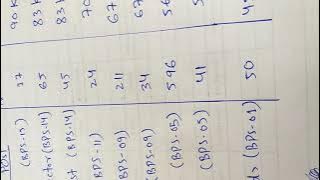 (BPS-15) 27 90 K
ctor (BPS-14) 65 83 K
st (BPS-14) 45 83 K
(BPS-11) 24 70
(BPS-09) 211 67
(BPS-09) 34 67
(BPS-05) 596 56
(BPS-05) 41 5
(BPS-01) 50